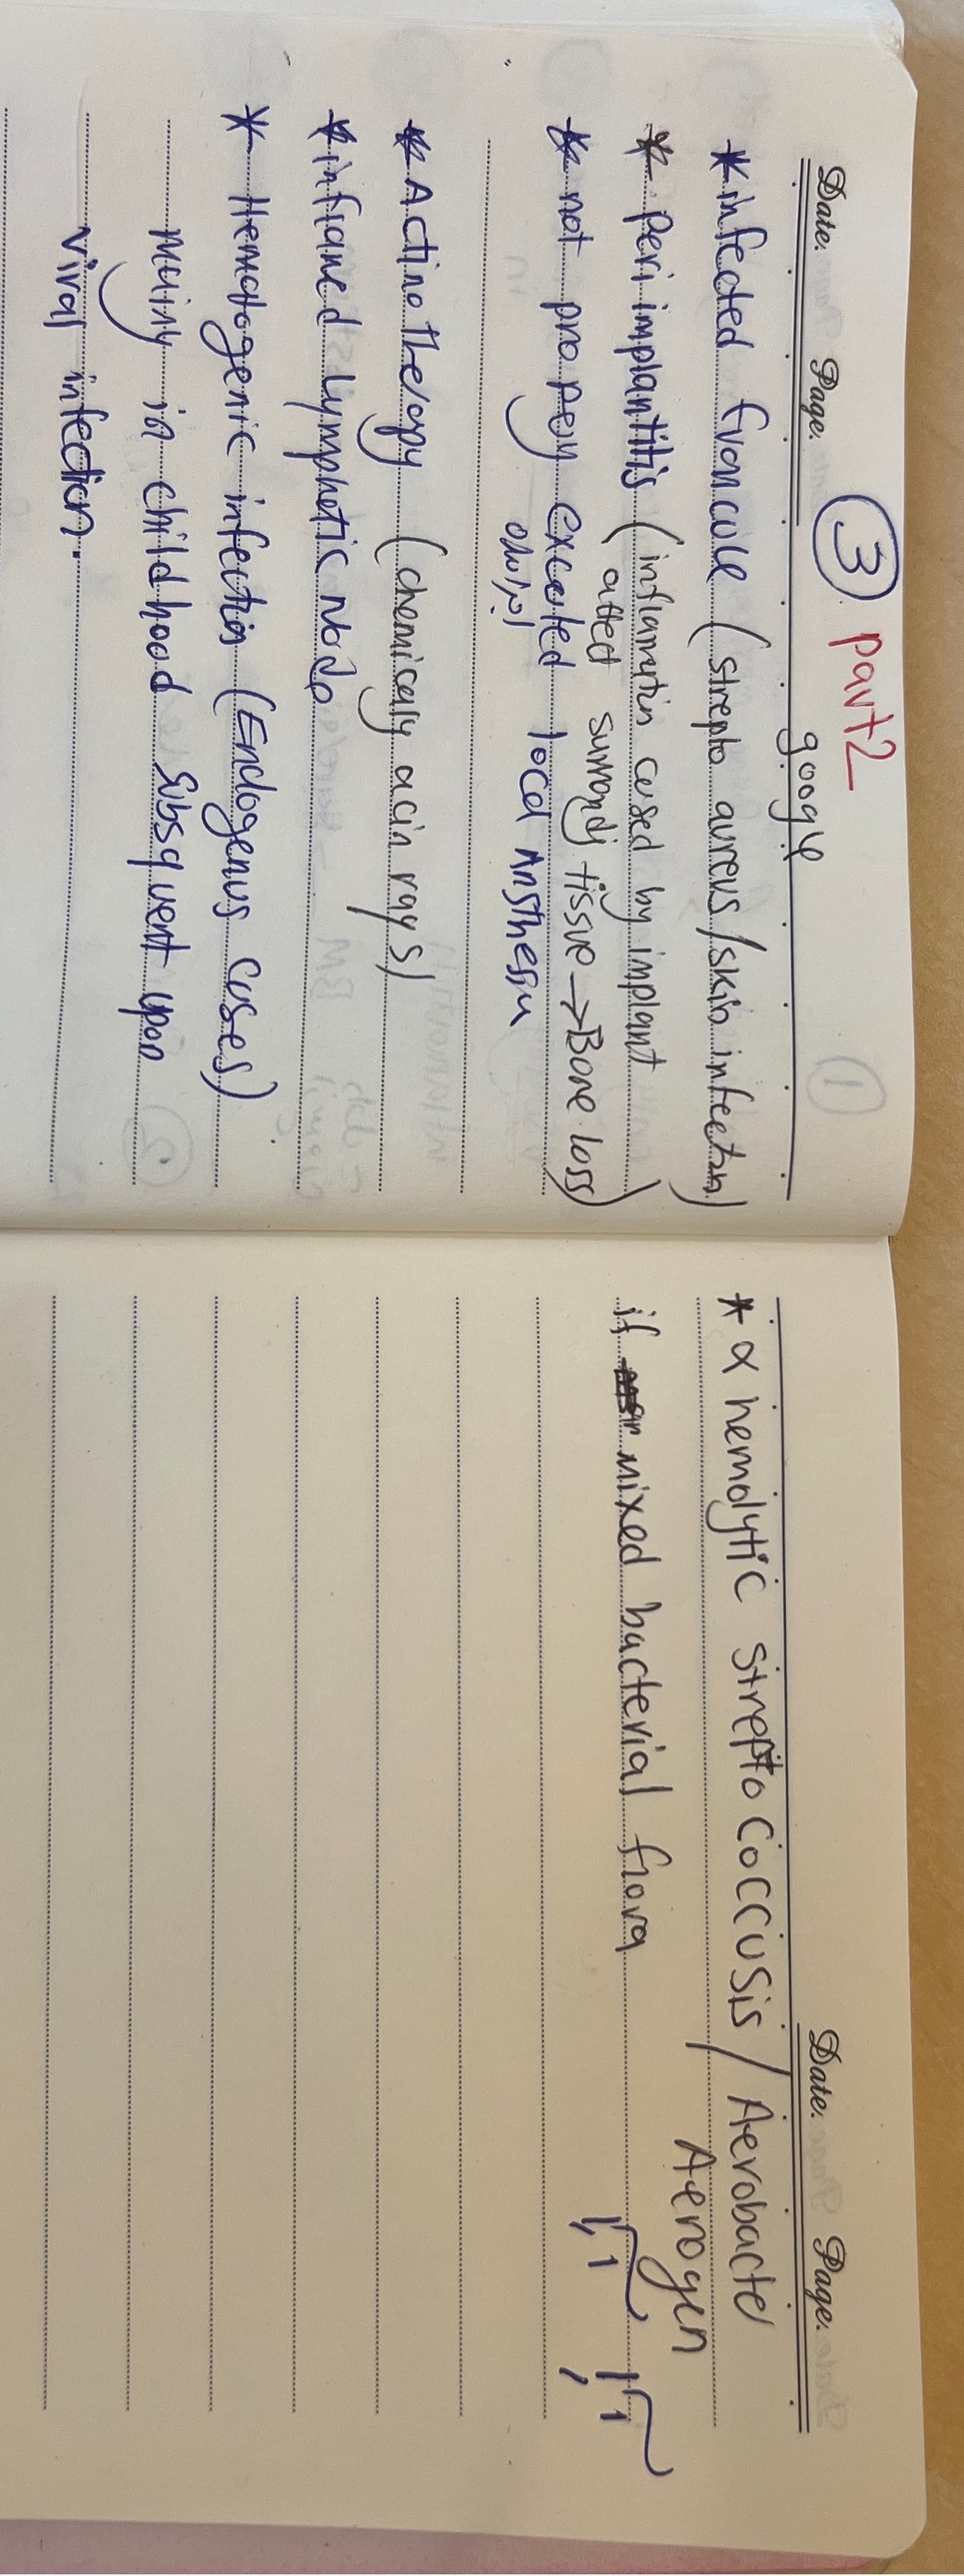 Date. Page.
③ part2
google
* infected francule (strepto aureus/skin infectin)
* peri implantitis (inflamytin cused by implant
affect surrondj tissue → Bone loss)
* not propery excuted local Ansthesia
* Actino therapy (chemicaly acin rays)
* inflamed Lymphetic Node
* Hematogenic infection (Endogenus cuses)
mainly in childhood Subsquent upon
viral infection.
Date. Page.
* α hemolytic streptococcusis / Aerobacte
Aerogen
if mixed bacterial flora